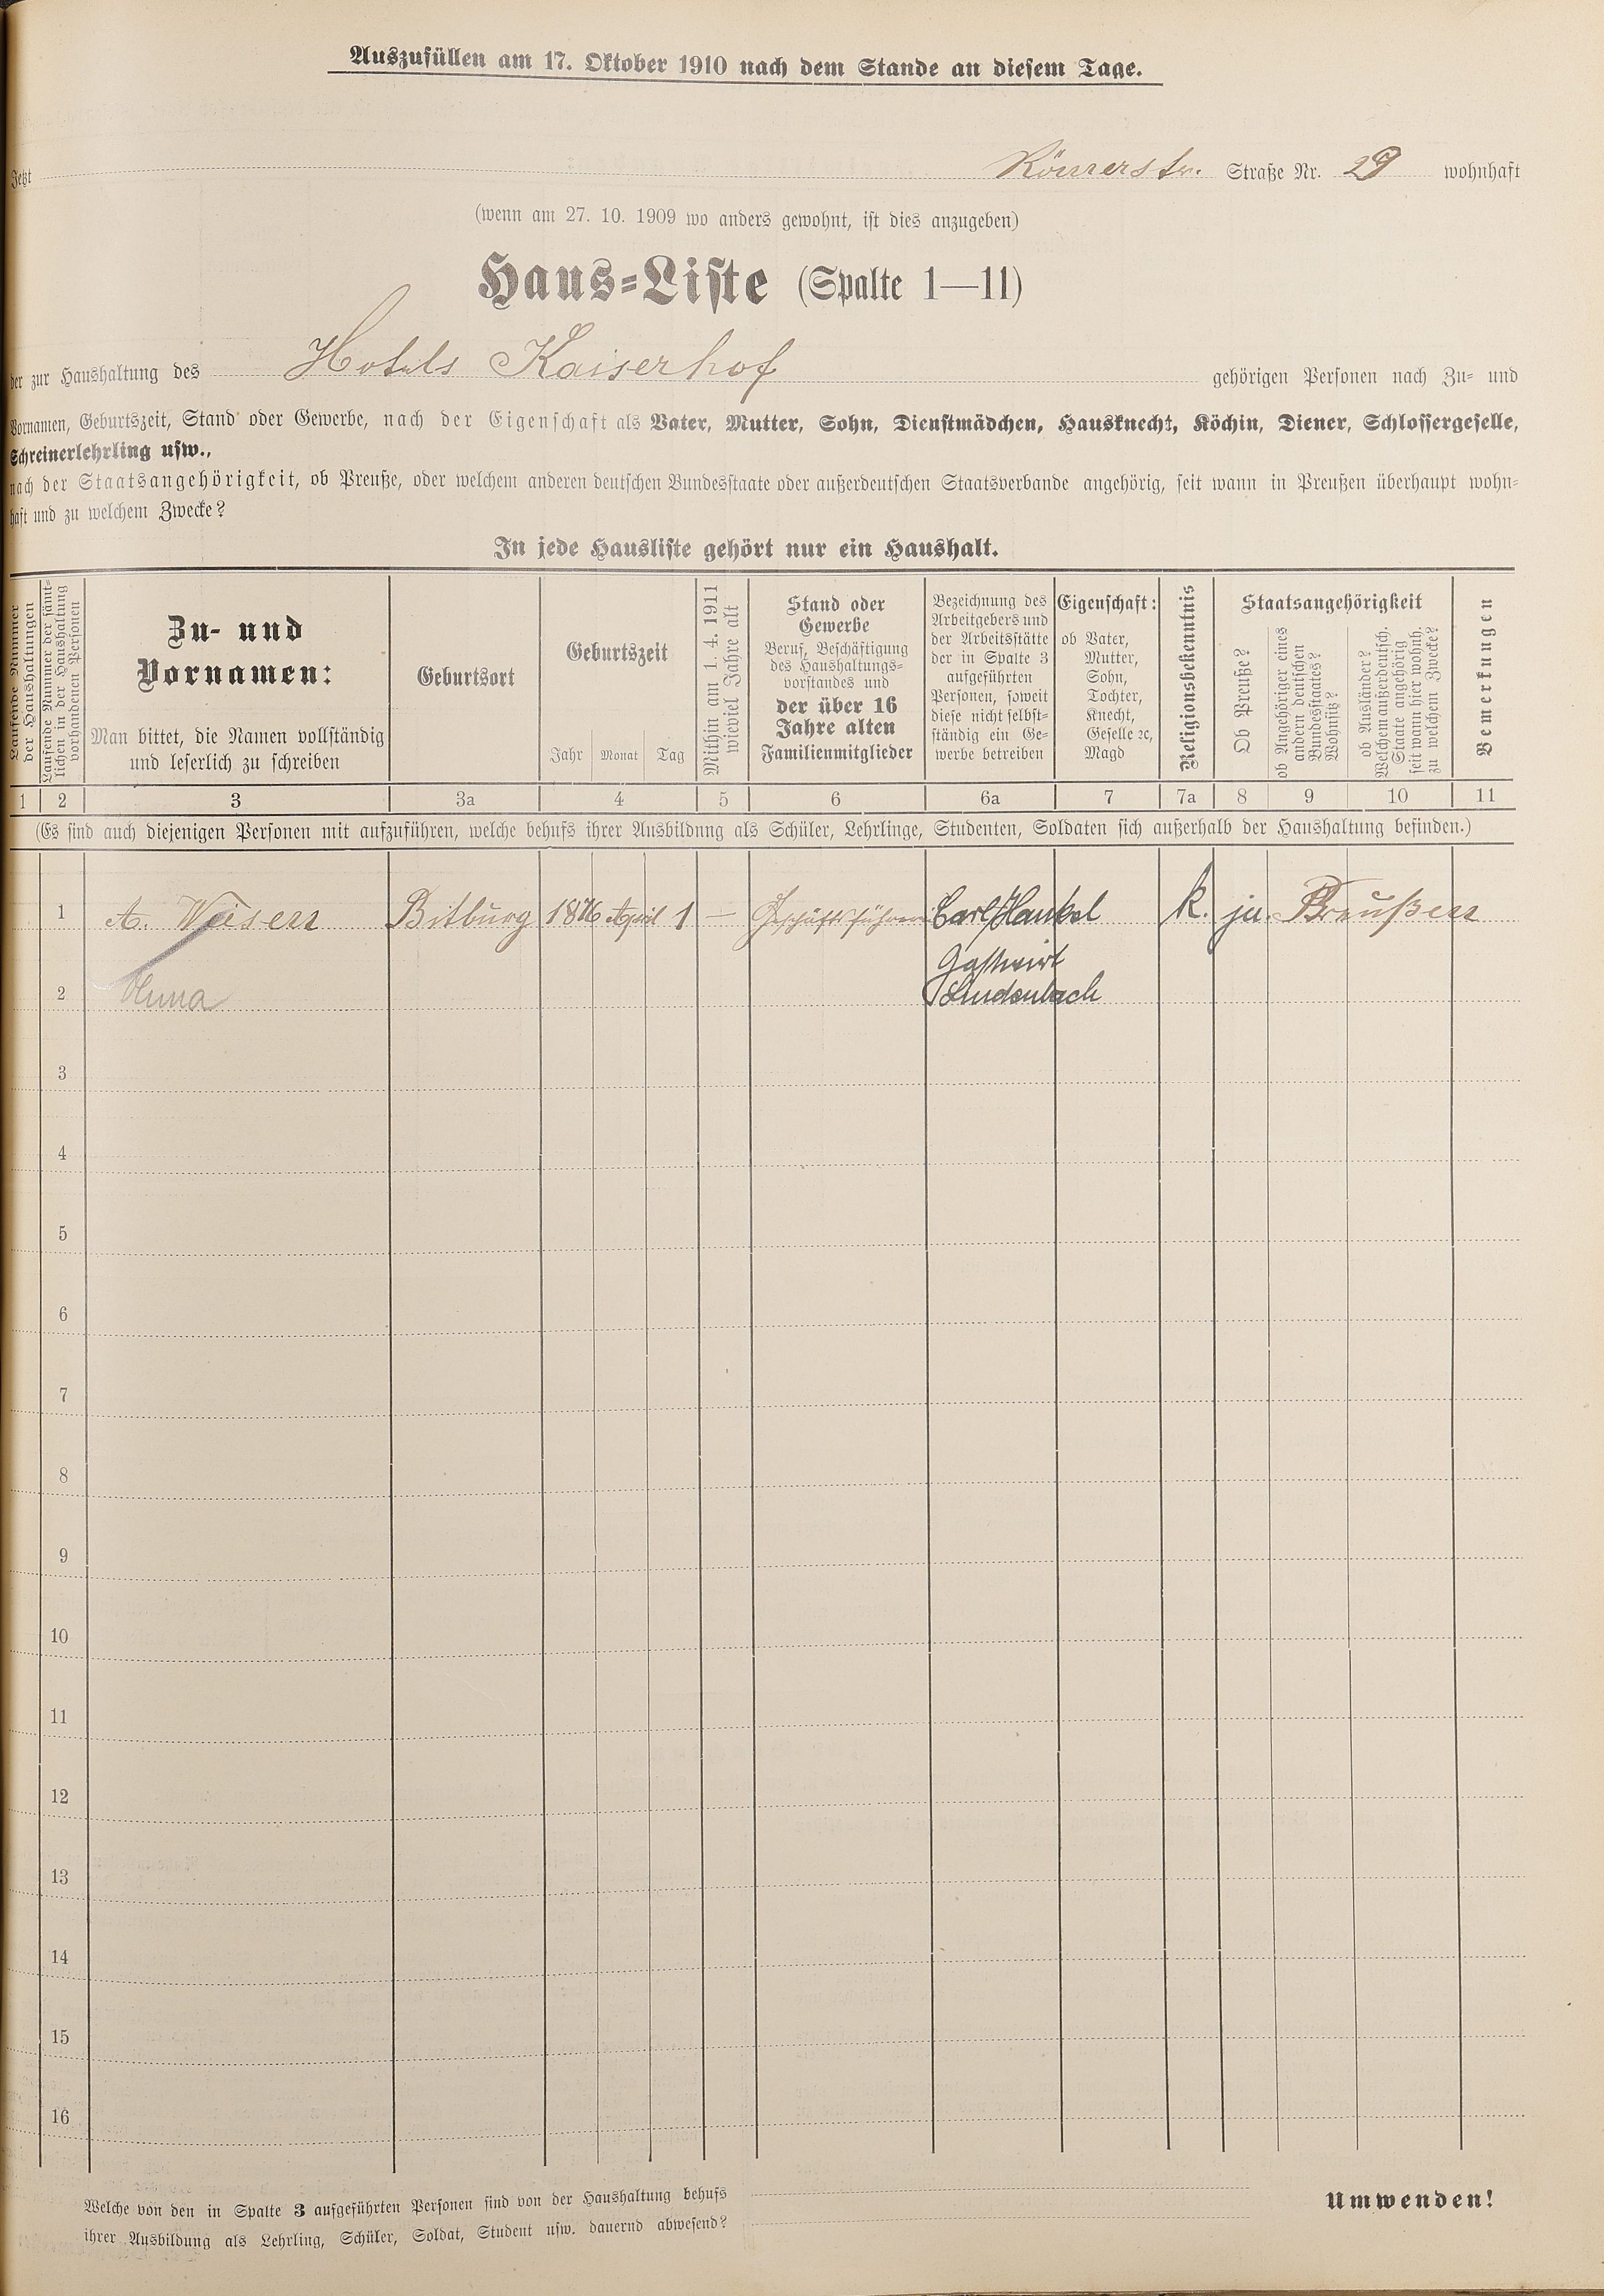 Auszufüllen am 17. Oktober 1910 nach dem Stande an diesem Tage.
Jetzt Römerstr. Straße Nr. 29 wohnhaft
(wenn am 27. 10. 1909 wo anders gewohnt, ist dies anzugeben)
Haus-Liste (Spalte 1—11)
der zur Haushaltung des Hotels Kaiserhof gehörigen Personen nach Zu- und
Vornamen, Geburtszeit, Stand oder Gewerbe, nach der Eigenschaft als Vater, Mutter, Sohn, Dienstmädchen, Hausknecht, Köchin, Diener, Schlossergeselle,
Schreinerlehrling usw.,
nach der Staatsangehörigkeit, ob Preuße, oder welchem anderen deutschen Bundesstaate oder außerdeutschen Staatsverbande angehörig, seit wann in Preußen überhaupt wohn-
haft und zu welchem Zwecke?
In jede Hausliste gehört nur ein Haushalt.
Laufende Nummer
der Haushaltungen
Laufende Nummer der sämt-
lichen in der Haushaltung
vorhandenen Personen
Zu- und
Vornamen:
Man bittet, die Namen vollständig
und leserlich zu schreiben
Geburtsort
Geburtszeit
Jahr Monat Tag
Mithin am 1. 4. 1911
wieviel Jahre alt
Stand oder
Gewerbe
Beruf, Beschäftigung
des Haushaltungs-
vorstandes und
der über 16
Jahre alten
Familienmitglieder
Bezeichnung des
Arbeitgebers und
der Arbeitsstätte
der in Spalte 3
aufgeführten
Personen, soweit
diese nicht selbst-
ständig ein Ge-
werbe betreiben
Eigenschaft:
ob Vater,
Mutter,
Sohn,
Tochter,
Knecht,
Geselle ꝛc,
Magd
Religionsbekenntnis
Staatsangehörigkeit
Ob Preuße?
ob Angehöriger eines
andern deutschen
Bundesstaates?
Wohnsitz?
ob Ausländer?
Welchem außerdeutsch.
Staate angehörig
seit wann hier wohnh.
zu welchem Zwecke?
Bemerkungen
1 2 3 3a 4 5 6 6a 7 7a 8 9 10 11
(Es sind auch diejenigen Personen mit aufzuführen, welche behufs ihrer Ausbildung als Schüler, Lehrlinge, Studenten, Soldaten sich außerhalb der Haushaltung befinden.)
1 A. Bitburg 1876 April 1 — Geschäftsführerin Carl Hankel k. ja. Preußen
Gastwirt
2 Anna
3
4
5
6
7
8
9
10
11
12
13
14
15
16
Welche von den in Spalte 3 aufgeführten Personen sind von der Haushaltung behufs
ihrer Ausbildung als Lehrling, Schüler, Soldat, Student usw. dauernd abwesend?
Umwenden!